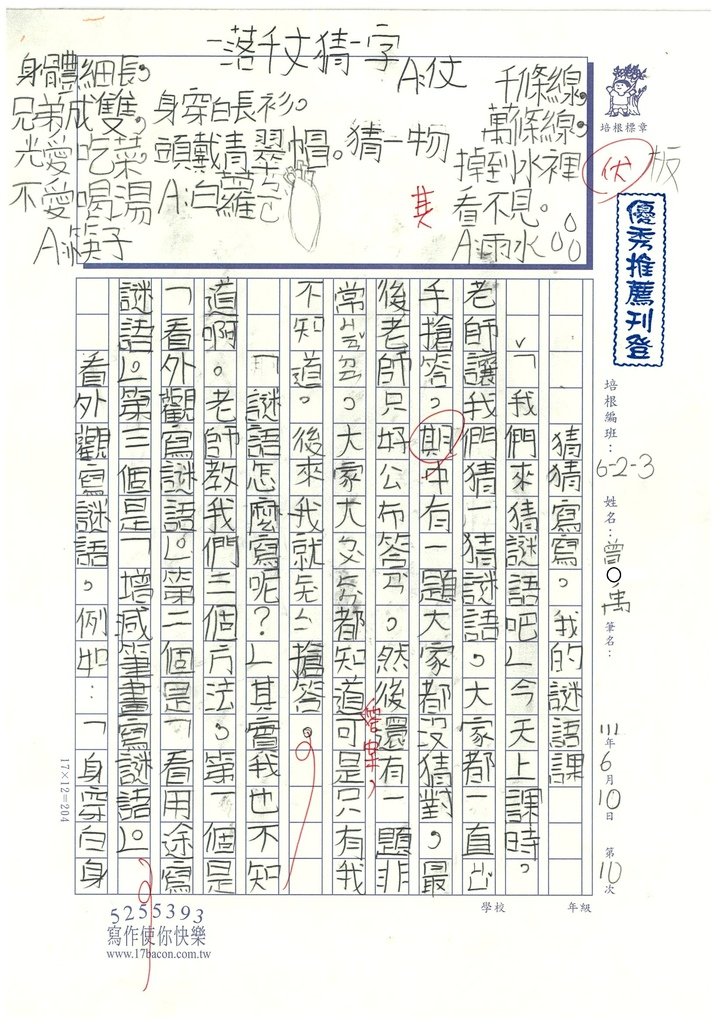 一落千丈猜一字
A:仗
千條線，
萬條線，
掉到水裡
看不見。
A:雨水
身穿白長衫。
頭戴精翠ㄌㄩˋ帽。猜一物
A:白蘿ㄅㄛ
身體細長，
兄弟成雙，
光愛吃菜，
不愛喝湯
A:筷子
培根標章
伏
板
其
優秀推薦刊登
培根編班：6-2-3
姓名：曾○禹
筆名：
111年6月10日
第10次
猜猜寫寫。我的謎語課
「我們來猜謎語吧」今天上課時。
老師讓我們猜一猜謎語。大家都一直出
手搶答。期中有一題大家都沒猜對。最
後老師只好公布答ㄢˋ。然後還有一題非
答案，
常ㄐㄧㄢˇㄉㄢ。大家ㄊㄞˋㄉㄡ都知道可是只有我
不知道。後來我就ㄊㄡˊㄢˋ搶答。
「謎語怎麼寫呢？」其實我也不知
道啊。老師教我們三個方法。第一個是
「看外觀寫謎語」。第二個是「看用途寫
謎語」。第三個是「增減筆畫寫謎語」。
看外觀寫謎語。例如：「身穿白身
17×12=204
學校 年級
5255393
寫作使你快樂
www.17bacon.com.tw